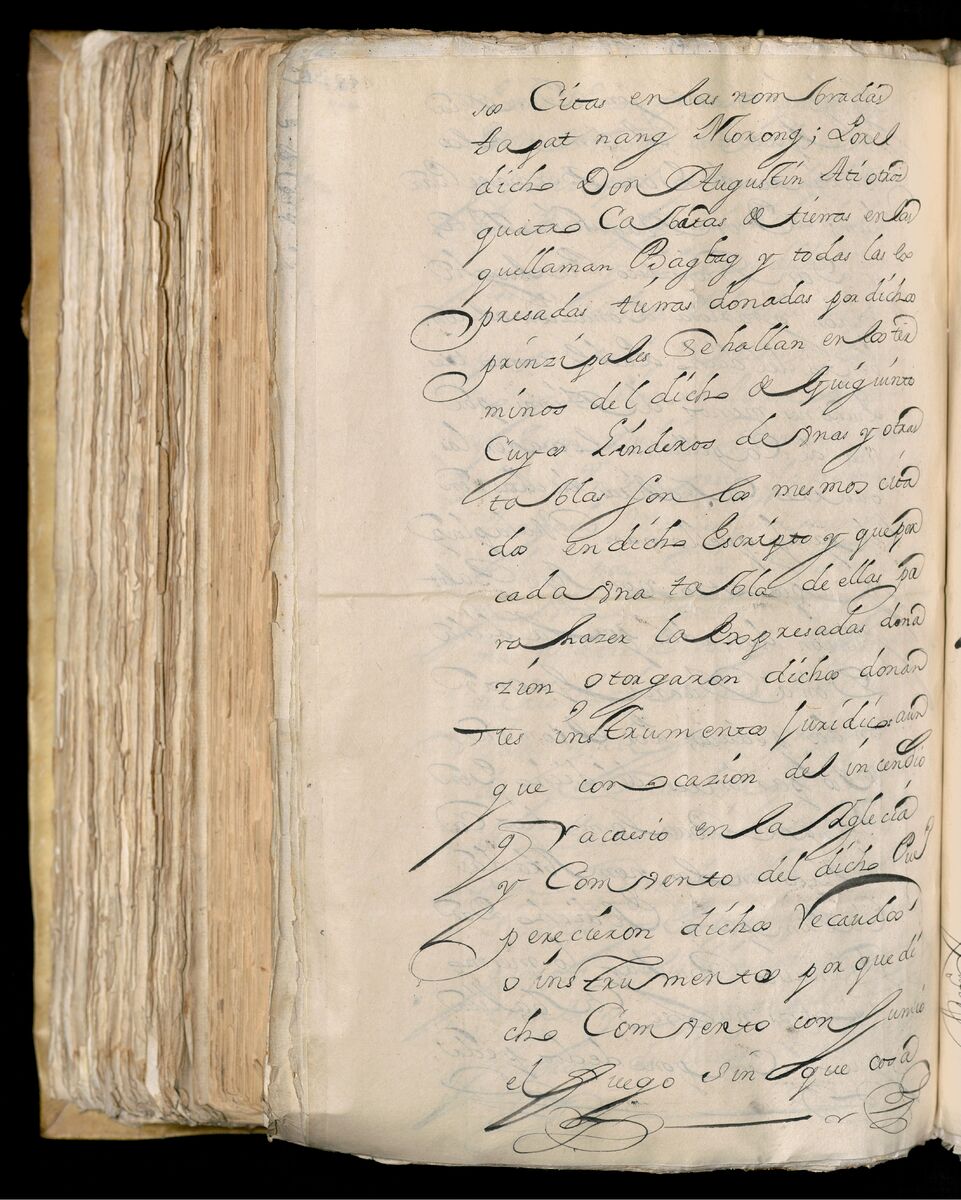 sos Citas en las nombradas
tagat nang Morong; Por el
dicho Don Augustin Ati otras
quatro Cabitas de tierras en las
que llaman Bagbag y todas las ex
presadas tierras donadas por dichos
prinzipales se hallan en los ter
minos del dicho de Guiguinto
Cuyos Linderos de unas y otras
tablas son los mesmos cita
dos en dicho Escripto y que por
cada una tabla de ellas pa
ra hazer la Expresadas dona
zion otorgaron dichos donan
tes instrumentos Juridicos aun
que con ocazion del incendio
q acaesio en la Yglecia
y Comvento del dicho Pueo
perecieron dichos Recaudos
o instrumentos por que di
cho Comvento consumio
el fuego sin que cosa